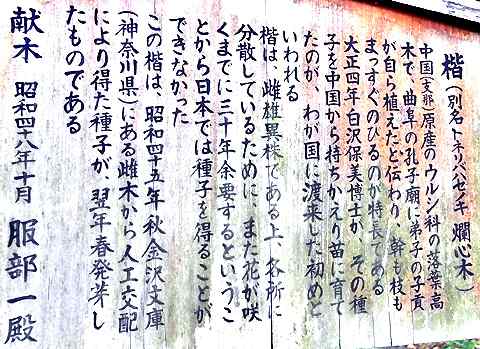 楷(別名トネリバハゼノキ 爛心木)
中国(支那)原産のウルシ科の落葉高
木で、曲阜の孔子廟に弟子の子貢
が自ら植えたと伝わり、幹も枝も
まっすぐのびるのが特長である
大正四年白沢保美博士が、その種
子を中国から持ちかえり苗に育て
たのが、わが国に渡来した初めと
いわれる
楷は、雌雄異株である上、各所に
分散しているために、また花が咲
くまでに三十年余要するというこ
とから日本では種子を得ることが
できなかった
この楷は、昭和四十五年秋金沢文庫
(神奈川県)にある雌木から人工交配
により得た種子が、翌年春発芽し
たものである
献木 昭和四十八年十月 服部一殿